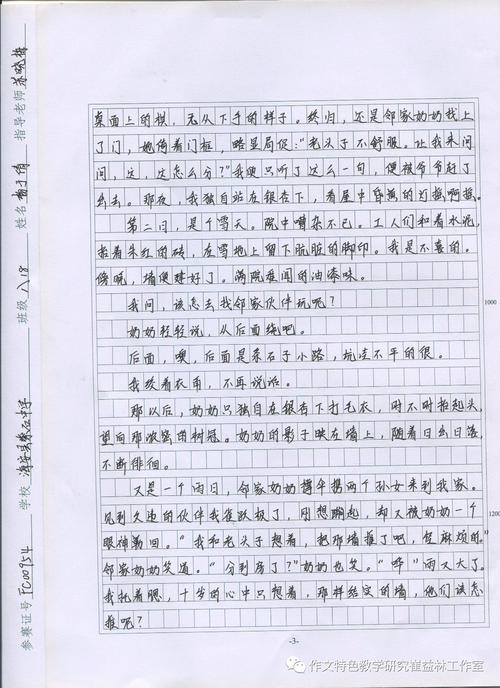 桌面上的棋，无从下手的样子。终归，还是邻家奶奶找上
了门，她倚着门框，略显局促："老头子不舒服。让我来问
问，这，这怎么分？"我便只听了这么一句，便被爷爷赶了
出去。那夜，我独自站在银杏下，看屋中昏黄的灯摇啊摇。
第二日，是个雪天。院中嘈杂不已。工人们和着水泥，
抬着朱红的砖，在雪地上留下肮脏的脚印。我是不喜的。
傍晚，墙便建好了。满院难闻的油漆味。
我问，该怎去找邻家伙伴玩呢？
奶奶轻轻说，从后面绕吧。
后面，噢，后面是条石子小路，坑洼不平的很。
我绞着衣角，不再说话。
那以后，奶奶只独自在银杏下打毛衣，时不时抬起头，
望向那浓密的树冠。奶奶的影子映在墙上，随着日出日落，
不断徘徊。
又是一个雨日，邻家奶奶携两个孙女来到我家。
见到久违的伙伴我雀跃极了，刚想蹦起，却又被奶奶一个
眼神勒回。"我和老头子想着，把那墙推了吧，怪麻烦的。"
邻家奶奶笑道。"分到房了？"奶奶也笑。"哗"雨又大了。
我托着腮，十岁的心中只想着，那样结实的墙，他们该怎
推呢？
1000
1200
-3-
参赛证号 FC00954 学校 班级 八18 姓名 指导老师
作文特色教学研究崔益林工作室